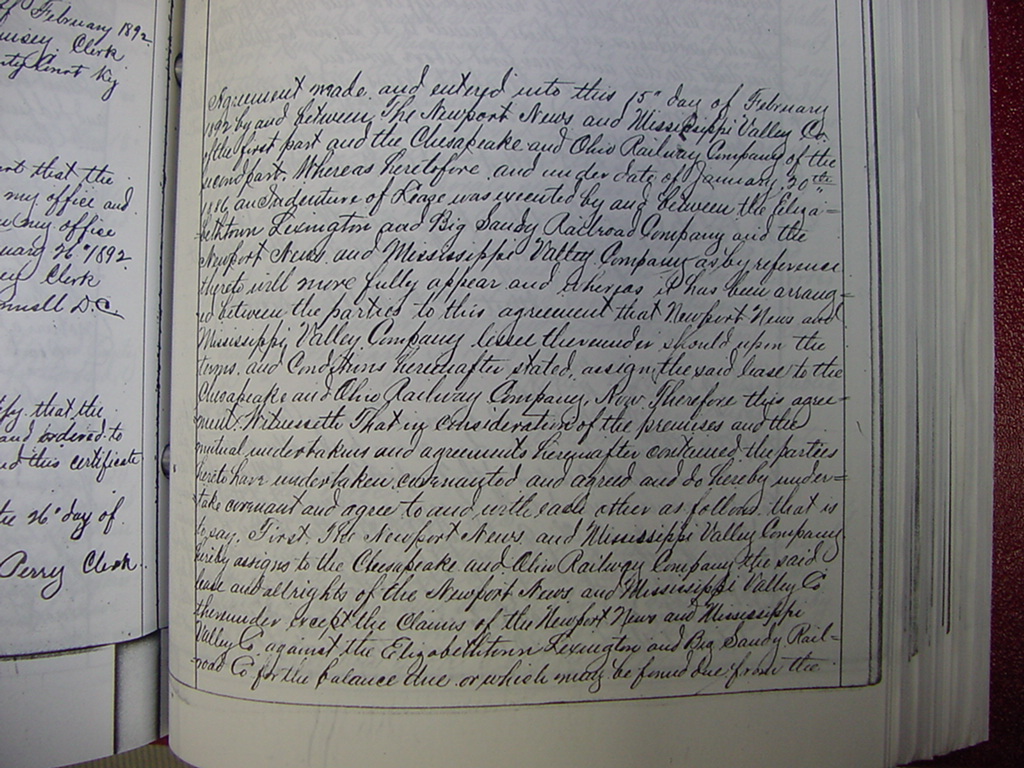 of February 1892.
Clerk
Court Ky
that the
my office and
my office
26" 1892.
Clerk
D.C.
that the
and ordered to
this certificate
the 26" day of
Perry Clerk.
Agreement made and entered into this 15" day of February
1892 by and between The Newport News and Mississippi Valley Co.
of the first part and the Chesapeake and Ohio Railway Company of the
second part. Whereas heretofore and under date of January 30th
1886, an Indenture of Lease was executed by and between the Eliza=
bethtown Lexington and Big Sandy Railroad Company and the
Newport News and Mississippi Valley Company as by reference
thereto will more fully appear and whereas it has been arrang=
ed between the parties to this agreement that Newport News and
Mississippi Valley Company lessee thereunder should upon the
terms and Conditions hereinafter stated, assign the said lease to the
Chesapeake and Ohio Railway Company, Now Therefore this agree=
ment. Witnesseth That in consideration of the premises and the
mutual undertakins and agreements hereinafter contained the parties
hereto have undertaken covenanted and agreed and do hereby under=
take covenant and agree to and with each other as follows, that is
to say, First, The Newport News and Mississippi Valley Company
hereby assigns to the Chesapeake and Ohio Railway Company the said
lease and all rights of the Newport News and Mississippi Valley Co
thereunder except the Claims of the Newport News and Mississippi
Valley Co. against the Elizabethtown Lexington and Big Sandy Rail=
road Co for the balance due or which may be found due from the